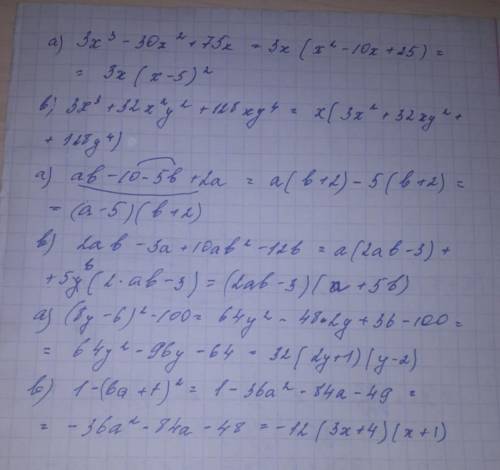 а) 3x³ - 30x² + 75x = 3x (x² - 10x + 25) =
= 3x (x - 5)²
в) 3x³ + 32x²y² + 128xy⁴ = x(3x² + 32xy² +
+ 128y⁴)
а) ab - 10 - 5b + 2a = a(b+2) - 5(b+2) =
= (a-5)(b+2)
в) 2ab - 3a + 10ab² - 12b = a(2ab - 3) +
+ 5b(2·ab - 3) = (2ab - 3)(a + 5b)
а) (8y - 6)² - 100 = 64y² - 48·2y + 36 - 100 =
= 64y² - 96y - 64 = 32(2y+1)(y-2)
в) 1 - (6a + 7)² = 1 - 36a² - 84a - 49 =
= -36a² - 84a - 48 = -12(3x+4)(x+1)